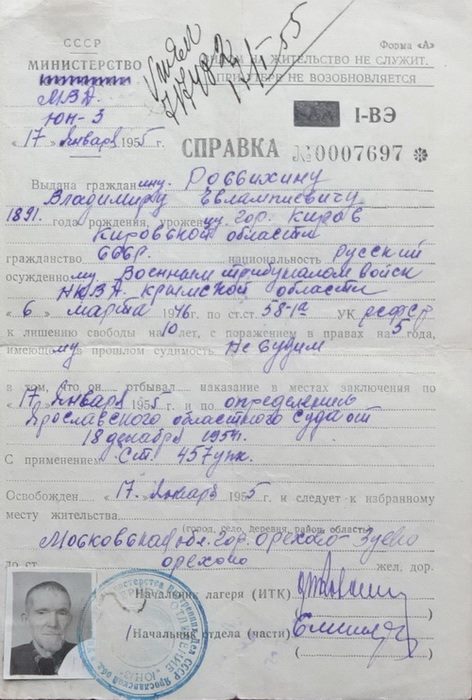 СССР
Форма «А»
МИНИСТЕРСТВО
ЖИТЕЛЬСТВО НЕ СЛУЖИТ.
ПРИ УТЕРЕ НЕ ВОЗОБНОВЛЯЕТСЯ
МВД
ЮН-3
I-ВЭ
«17» Января 1955 г.
СПРАВКА №0007697 *
Выдана гражданину
Владимиру Евлампиевичу
1891 года рождения, уроженцу гор. Киров
Кировской области
гражданство СССР национальность Русский
осужденному Военным трибуналом войск
НКВД Крымской области
«6» марта 1946 г. по ст.ст. 58-1а УК РСФСР
к лишению свободы на 10 лет, с поражением в правах на 5 года,
имеющему в прошлом судимость Не судим
в том, что он отбывал наказание в местах заключения по
«17» Января 1955 г. и по определению
Ярославского областного суда от
18 декабря 1954г.
С применением Ст. 457 упк.
Освобожден «17» Января 1955 г. и следует к избранному
месту жительства
(город, село, деревня, район область)
Московская обл. гор. Орехово-Зуево
до ст. Орехово жел. дор.
Начальник лагеря (ИТК)
Начальник отдела (части)